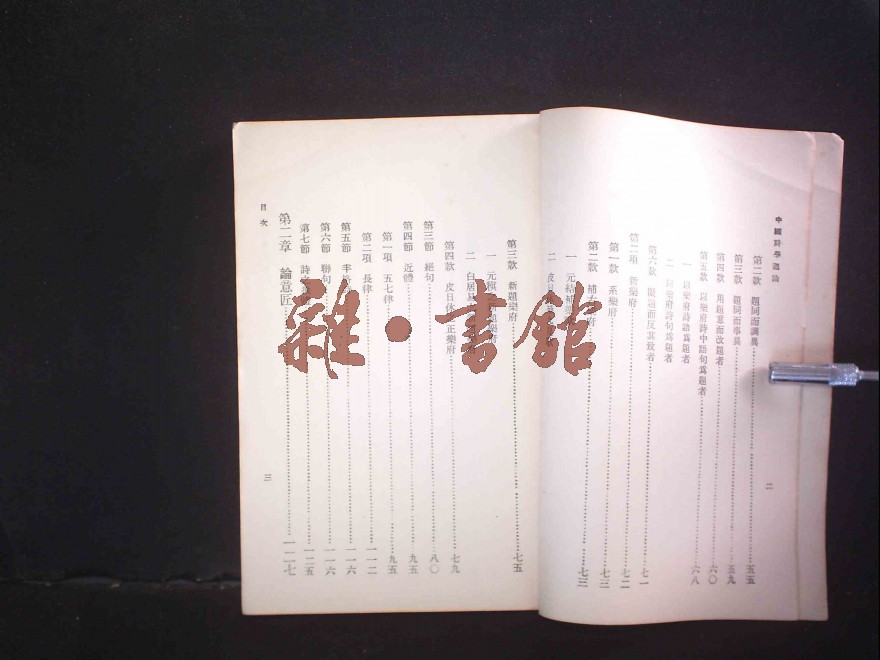 中國詩學通論
第二款 題同而調異 五五
第三款 題同而事異 五九
第四款 用題意而改題者 六〇
第五款 以樂府詩中語句爲題者 六八
一 以樂府詩語爲題者
二 以樂府詩句爲題者
第六款 擬題而反其致者 七一
第二項 新樂府 七二
第一款 系樂府 七三
第二款 補 府 七三
一 元結補
二 皮日
二
第三款 新題樂府 七五
一 元稹 題樂府
二 白居易 府
第四款 皮日休 正樂府 七九
第三節 絕句 八〇
第四節 近體 九五
第一項 五七律 九五
第二項 長律 一一二
第五節 一一六
第六節 聯句 一一六
第七節 詩 一二五
第二章 論意匠 一二七
目次
三
雜·書館